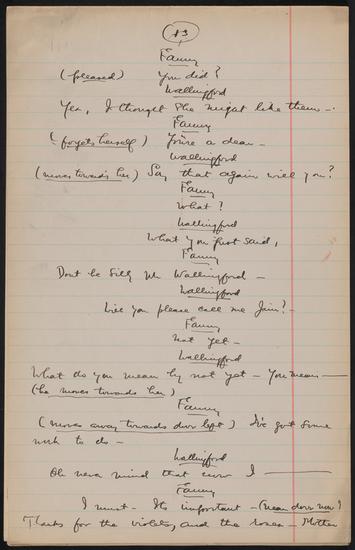 83
Fanny
(pleased) You did?
Wallingford
Yes, I thought she might like them —.
Fanny
(forgets herself) You're a dear —
Wallingford
(moves towards her) Say that again will you?
Fanny
What?
Wallingford
What you just said,
Fanny
Dont be silly Mr Wallingford —
Wallingford
Will you please call me Jim? —
Fanny
Not yet —
Wallingford
What do you mean by not yet — You mean —
(he moves towards her)
Fanny
(moves away towards door left) I've got some
work to do —
Wallingford
Oh never mind that now I —
Fanny
I must — Its important — (near door now)
Thanks for the violets, and the roses — Mother